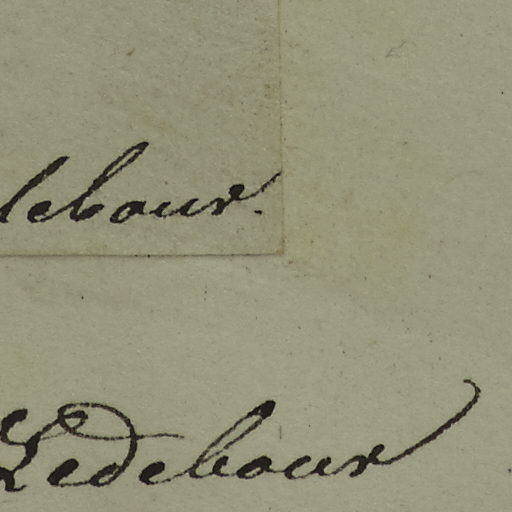 debour.
Ledebour